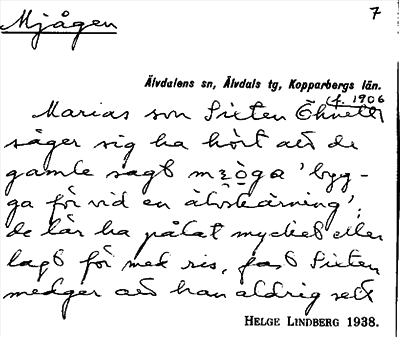 Mjågen
7
Älvdalens sn, Älvdals tg, Kopparbergs län.
(f. 1906
Marias son Sixten Öhnell
säger sig ha hört att de
gamle sagt 'byg-
ga för vid en älvskärning';
de lär ha pålat mycket eller
lagt för med ris, fast Sixten
medger att han aldrig sett
HELGE LINDBERG 1938.